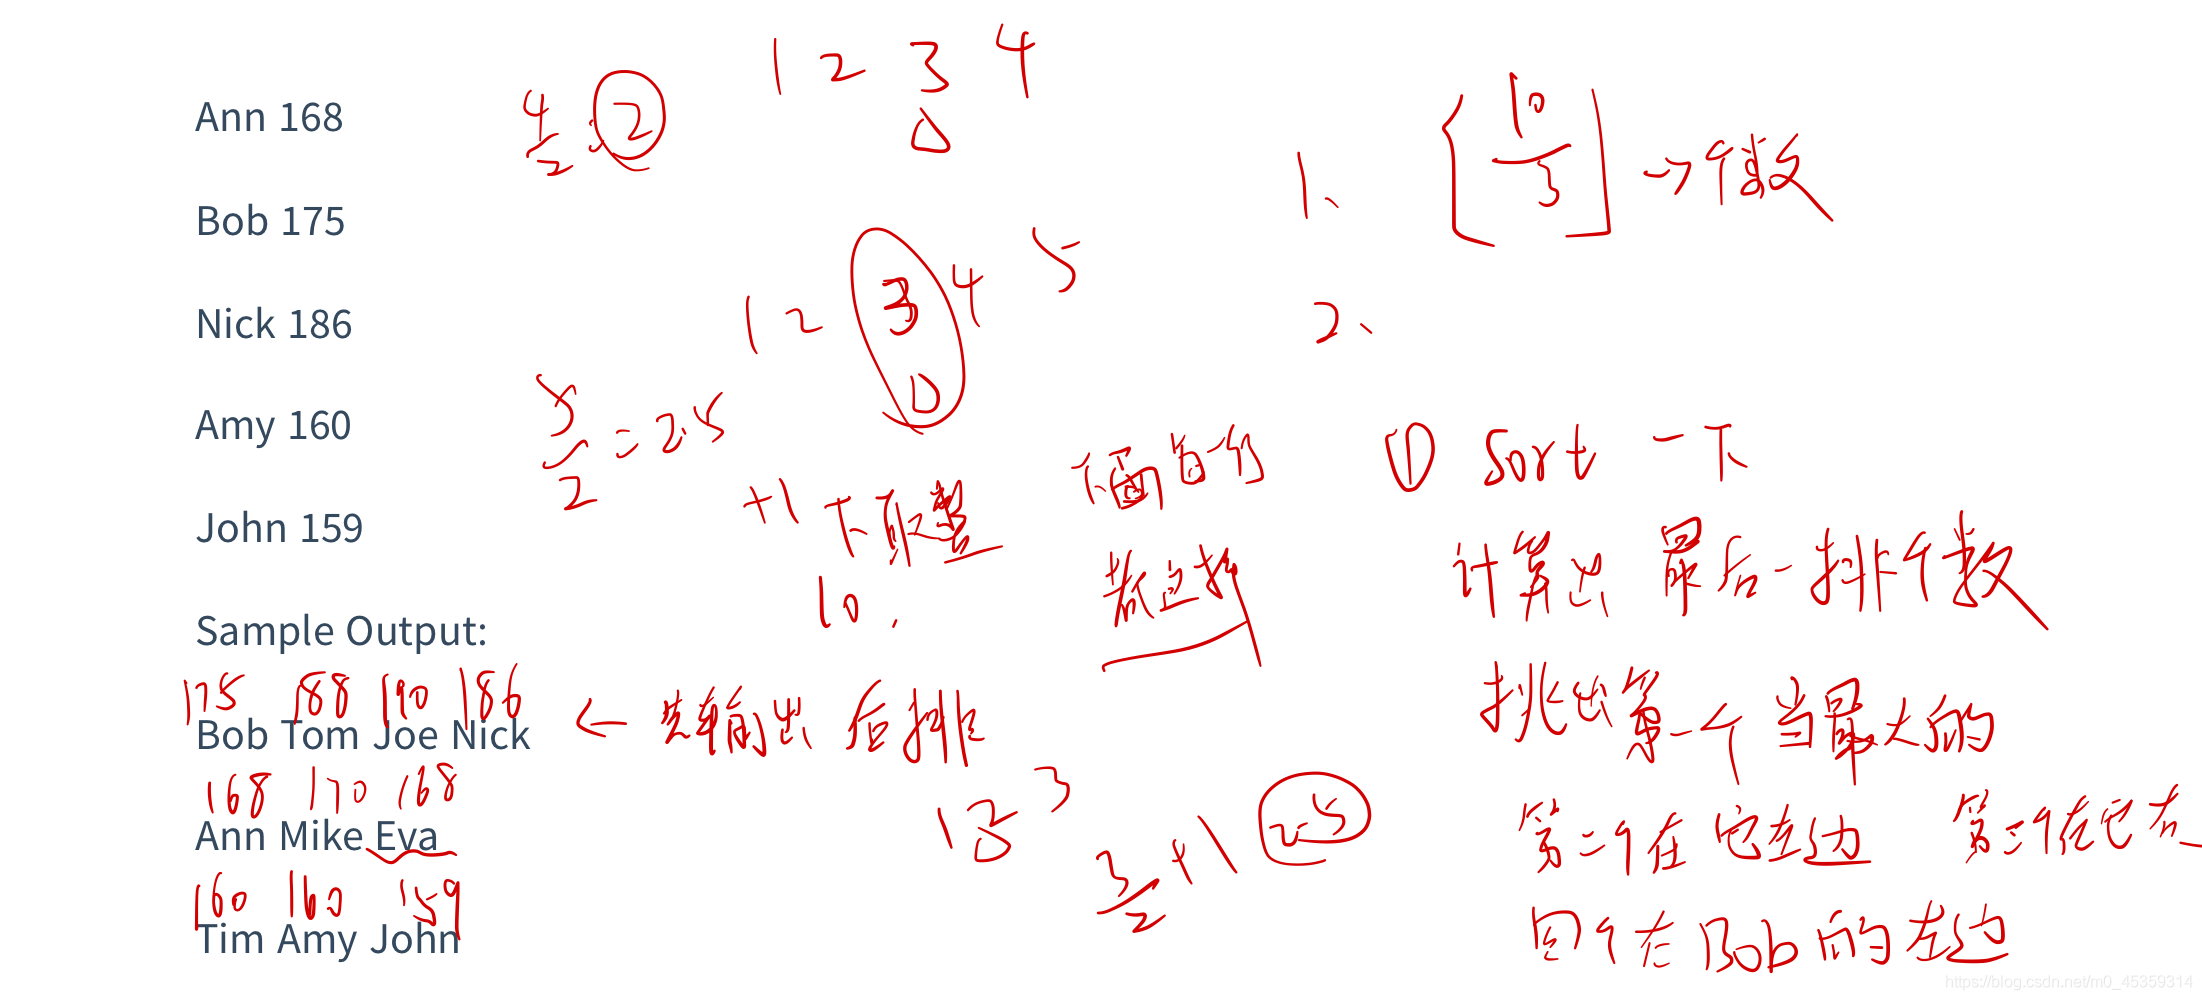 1 2 3 4
Ann 168
4/2 = 2
1、 [10/3] → 个数
Bob 175
1 2 3 4 5
Nick 186
2、
Amy 160
5/2 = 2.5
① Sort 一下
+1 下取整
John 159
计算出 最后一排个数
10.
Sample Output:
175 188 190 186
Bob Tom Joe Nick
← 先输出 后排
挑出第一个 当最大的
168 170 168
Ann Mike Eva
3/2 +1 2.5
第二个在它左边 第三个在它右
160 160 159
Tim Amy John
四个在Bob的左边
https://blog.csdn.net/m0_45359314